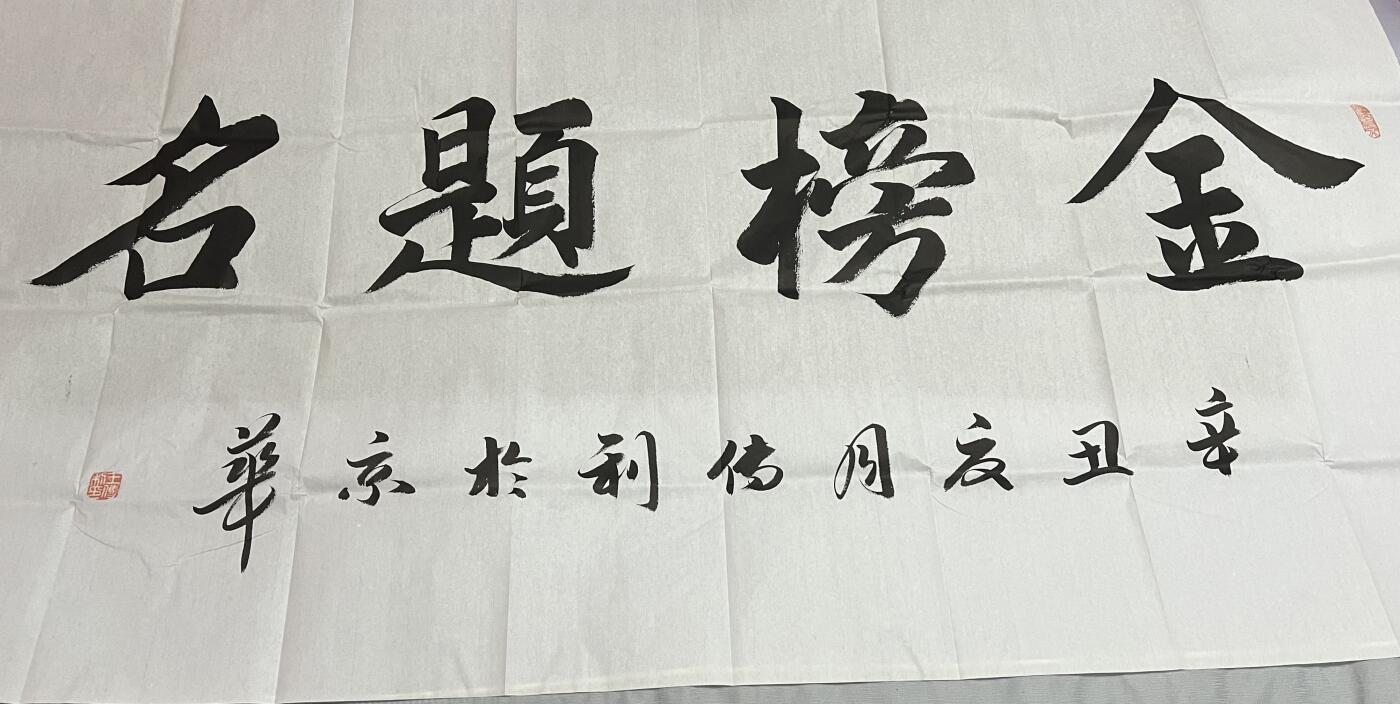 金榜題名
辛丑夏月传利於京華